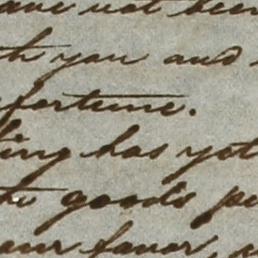 have not been
th you and
fortune.
ing has yet
the goods pe
our favor,